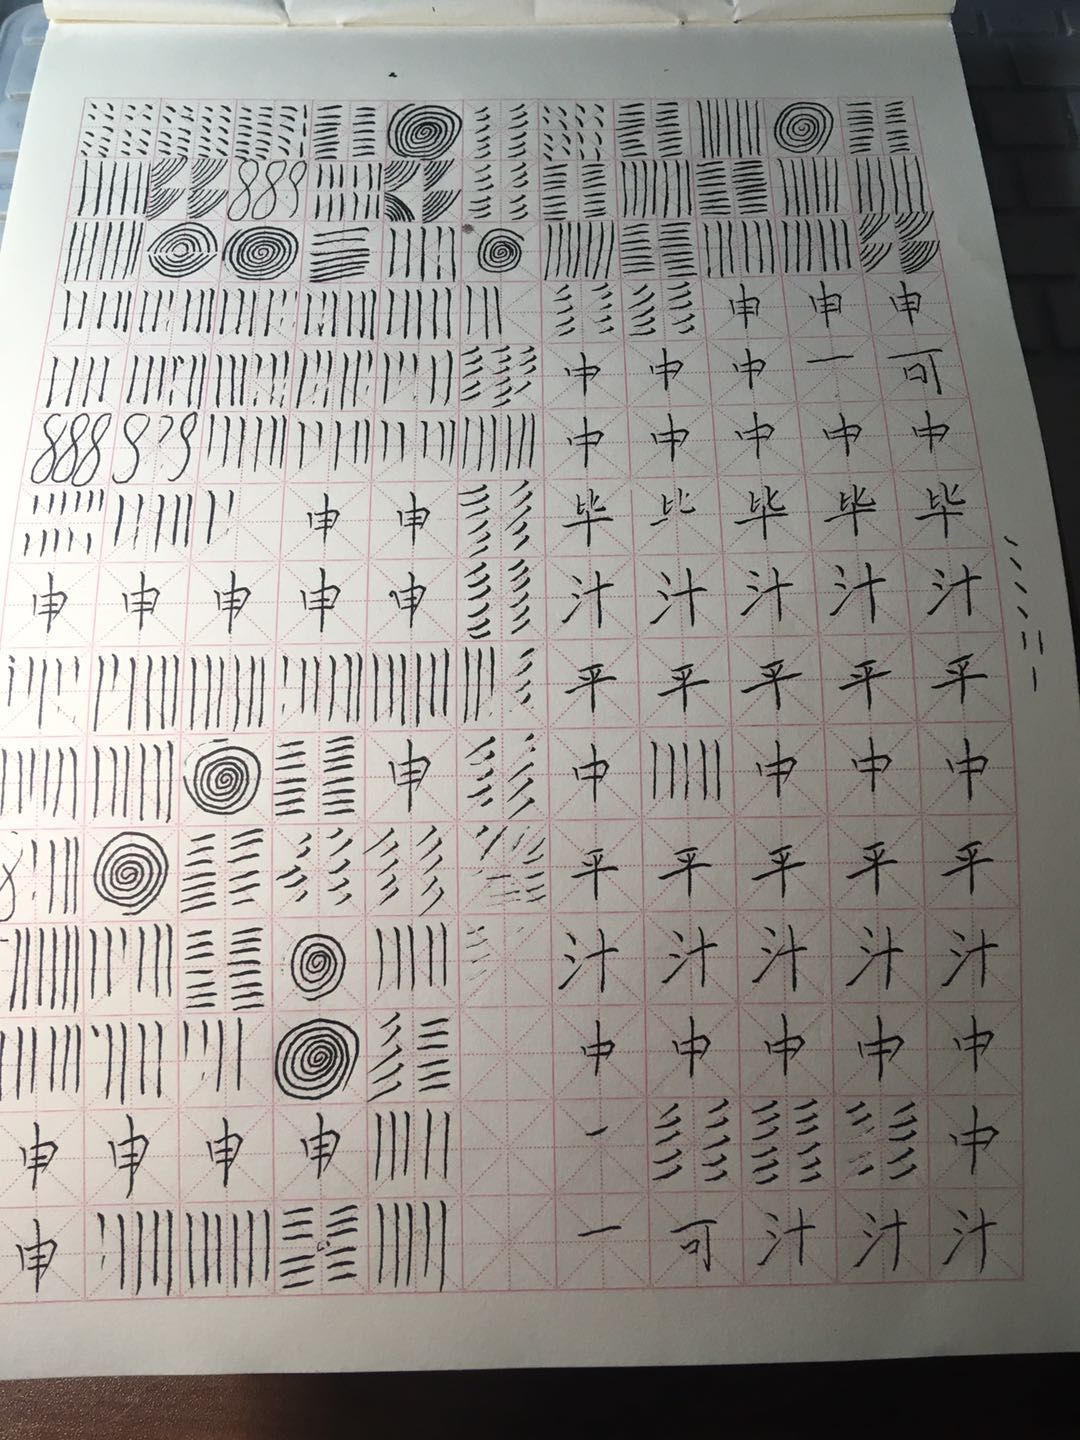 889
申 申 申
中 中 中 一 可
888 中 中 中 中 中
申 申 毕 比 毕 毕 毕
申 申 申 申 申 汁 汁 汁 汁 汁
平 平 平 平 平
申 中 中 中 中
平 平 平 平 平
汁 汁 汁 汁 汁
中 中 中 中 中
申 申 申 申 一 中
申 一 可 汁 汁 汁